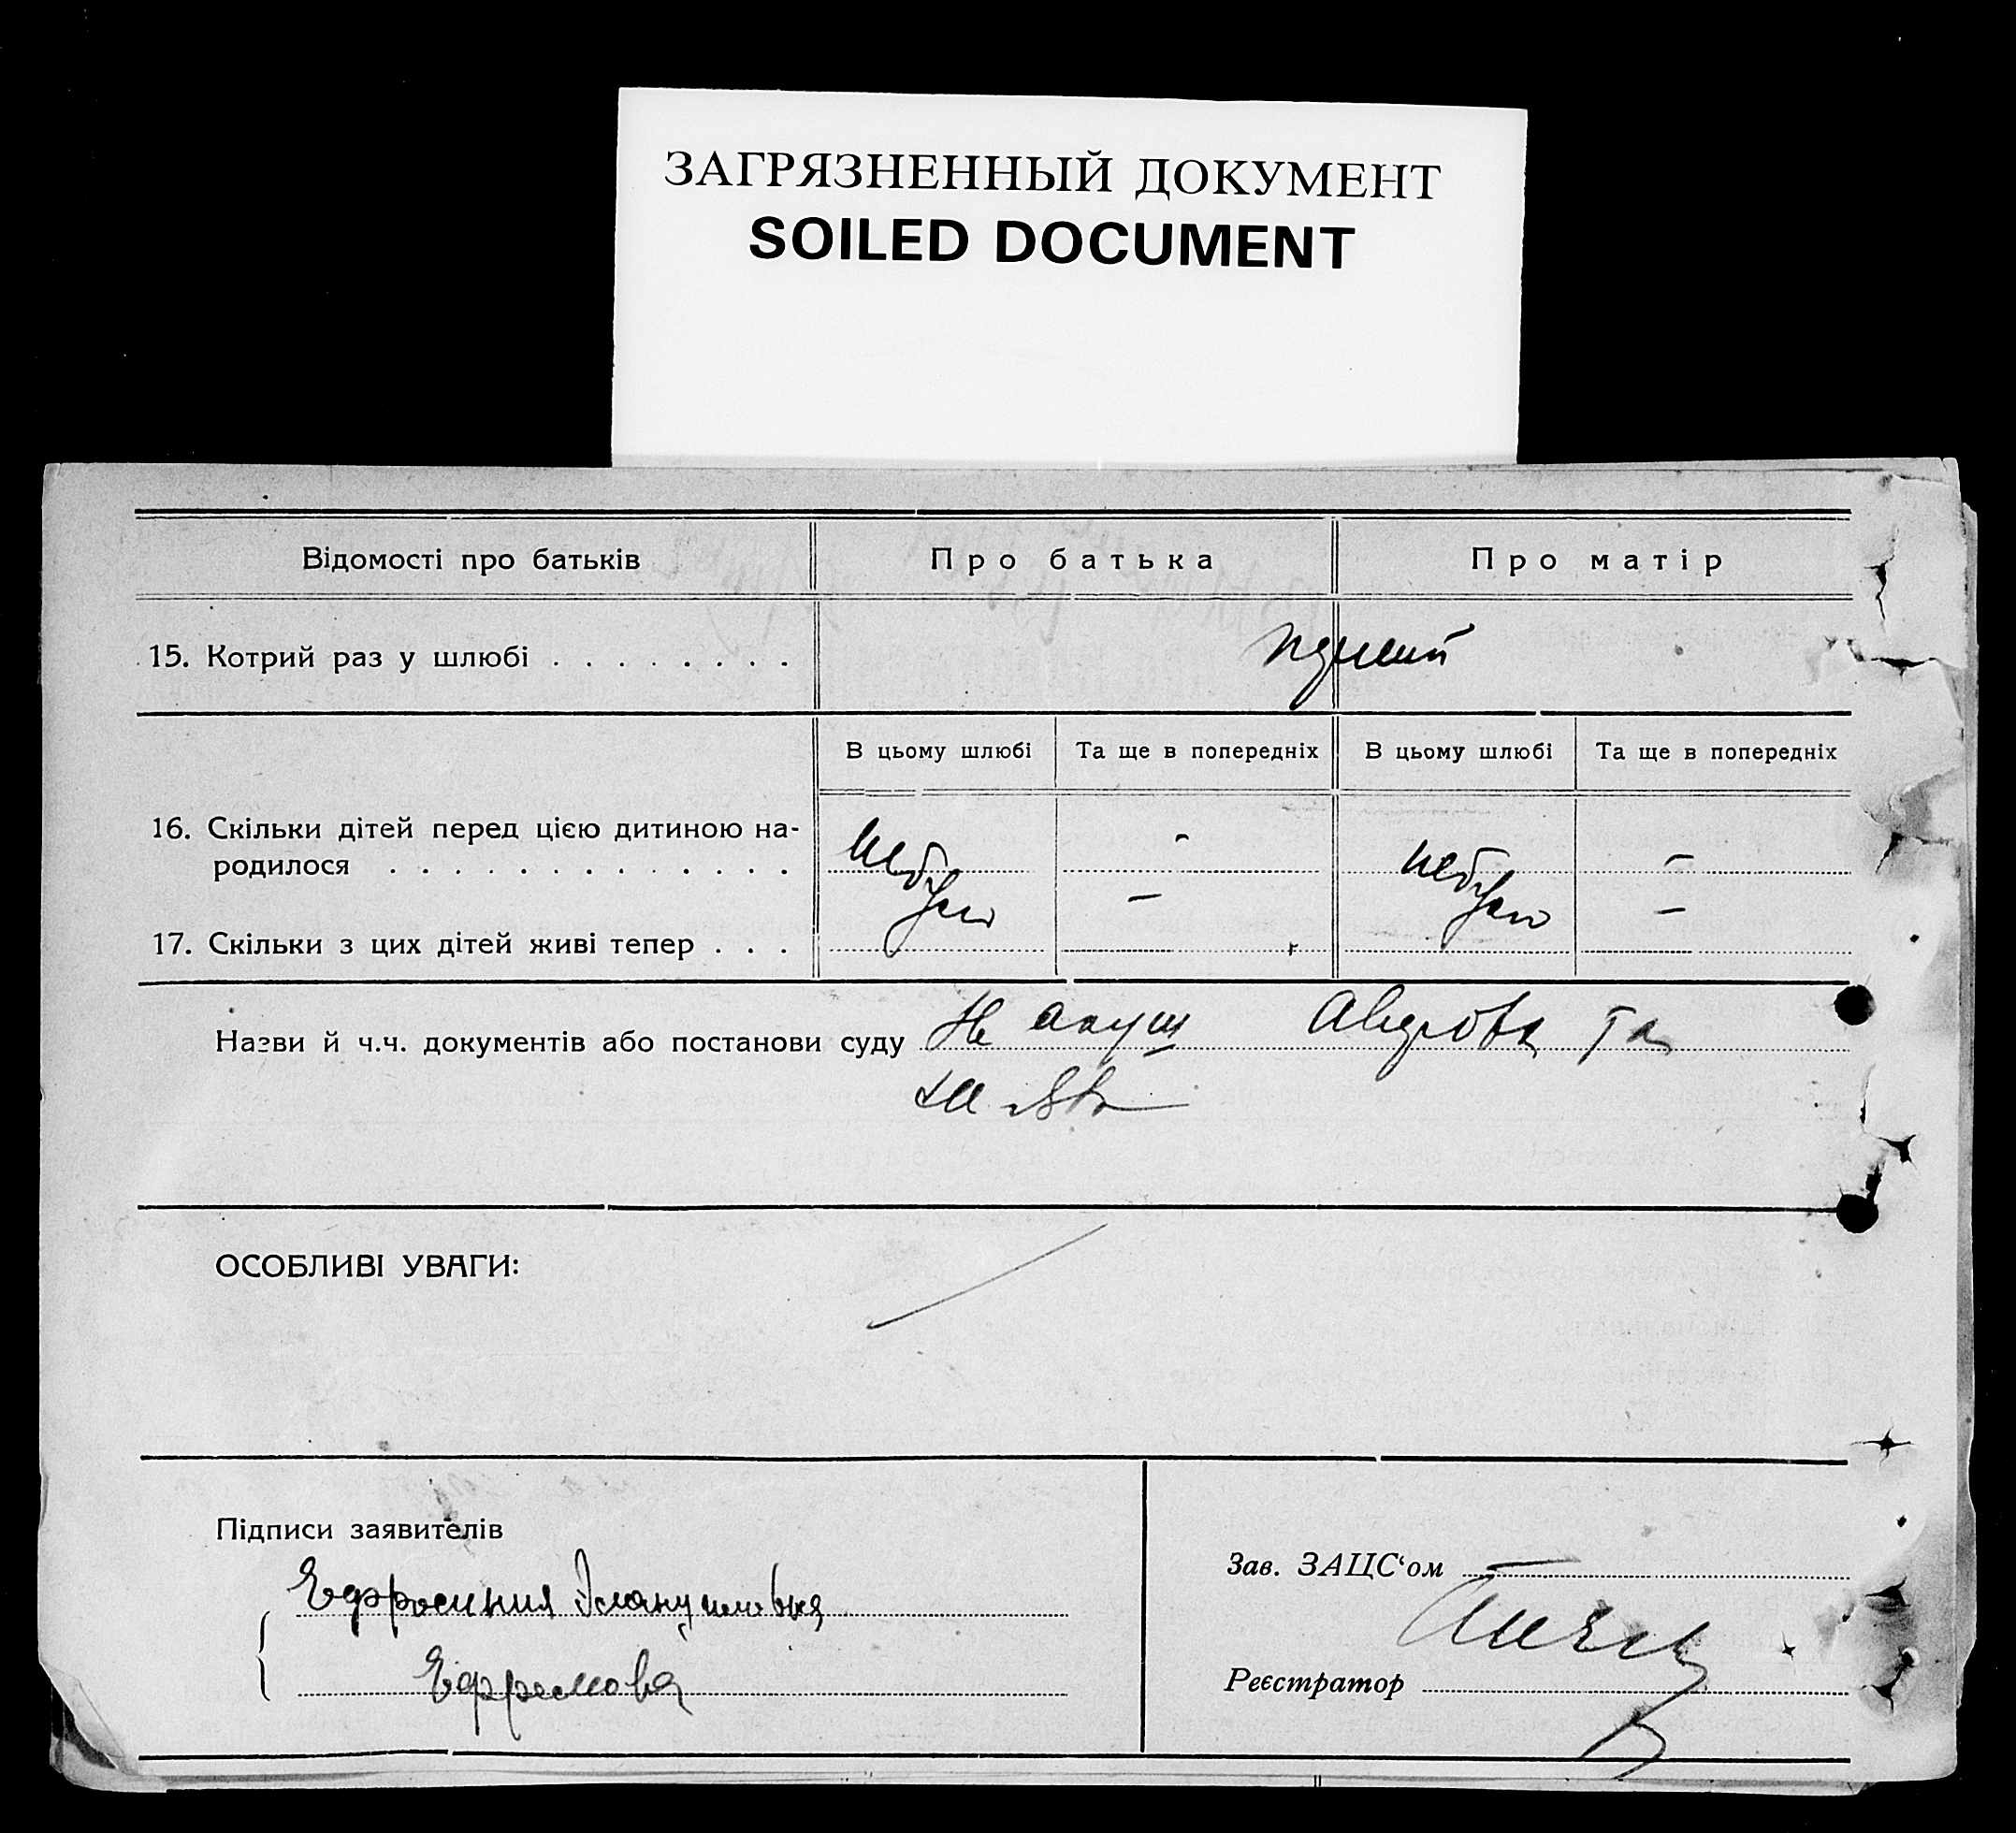 ЗАГРЯЗНЕННЫЙ ДОКУМЕНТ
SOILED DOCUMENT
Відомості про батьків Про батька Про матір
15. Котрий раз у шлюбі . . . . . . . . перший
В цьому шлюбі Та ще в попередніх В цьому шлюбі Та ще в попередніх
16. Скільки дітей перед цією дитиною на-
родилося . . . . . . . . . . . . . - -
17. Скільки з цих дітей живі тепер . . . - -
Назви й ч.ч. документів або постанови суду акуш та
ОСОБЛИВІ УВАГИ:
Підписи заявителів
Зав. ЗАЦС‘ом
Ефросиния
Реєстратор
Ефремова